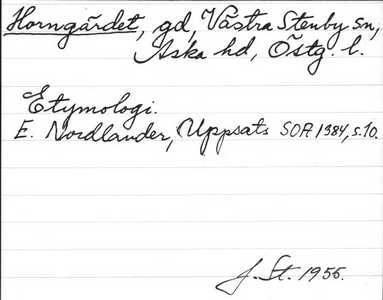 Horngärdet, gd, Västra Stenby sn,
Aska hd, Östg. l.
Etymologi.
E. Nordlander, Uppsats SOA 1384, s. 10.
J. St. 1955.